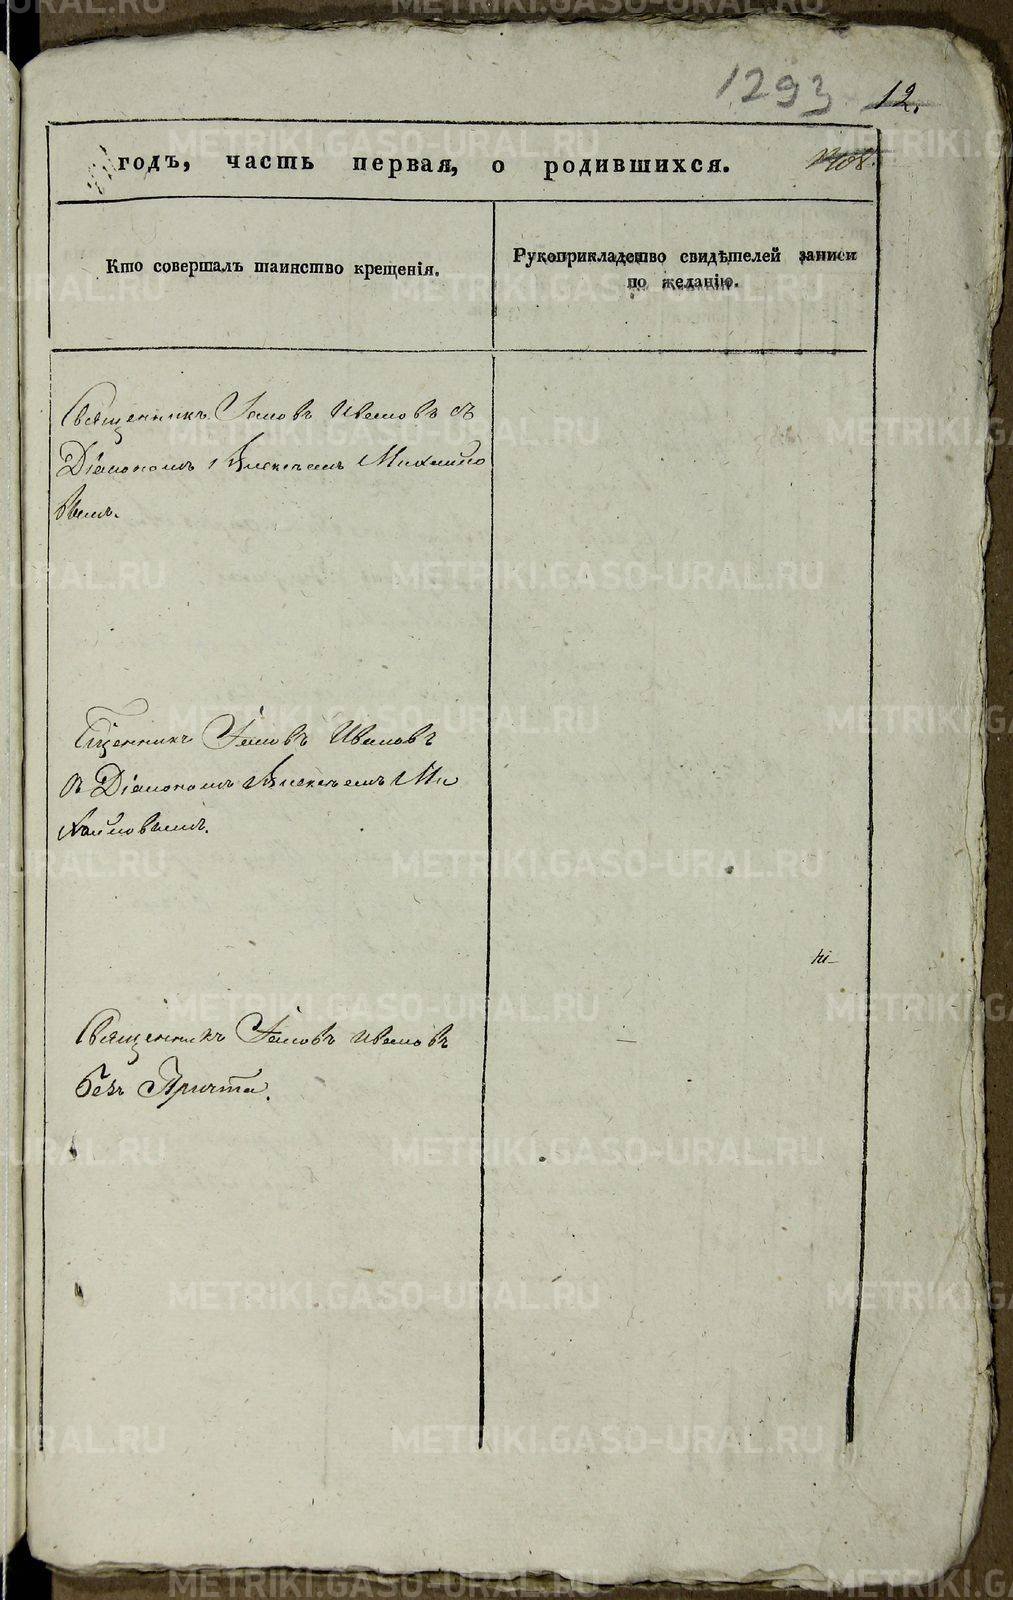 1293 12.
годъ, часть первая, о родившихся.
Кто совершалъ таинство крещенія.
Рукоприкладство свидѣтелей записи
по желанію.
Священникъ Іаковъ Ивановъ съ
Діакономъ Алексѣемъ Михайло
вымъ.
Сщенникъ Іаковъ Ивановъ
съ Діакономъ Алексѣемъ Ми
хайловымъ.
Священникъ Іаковъ Ивановъ
безъ Причта.
METRIKI.GASO-URAL.RU